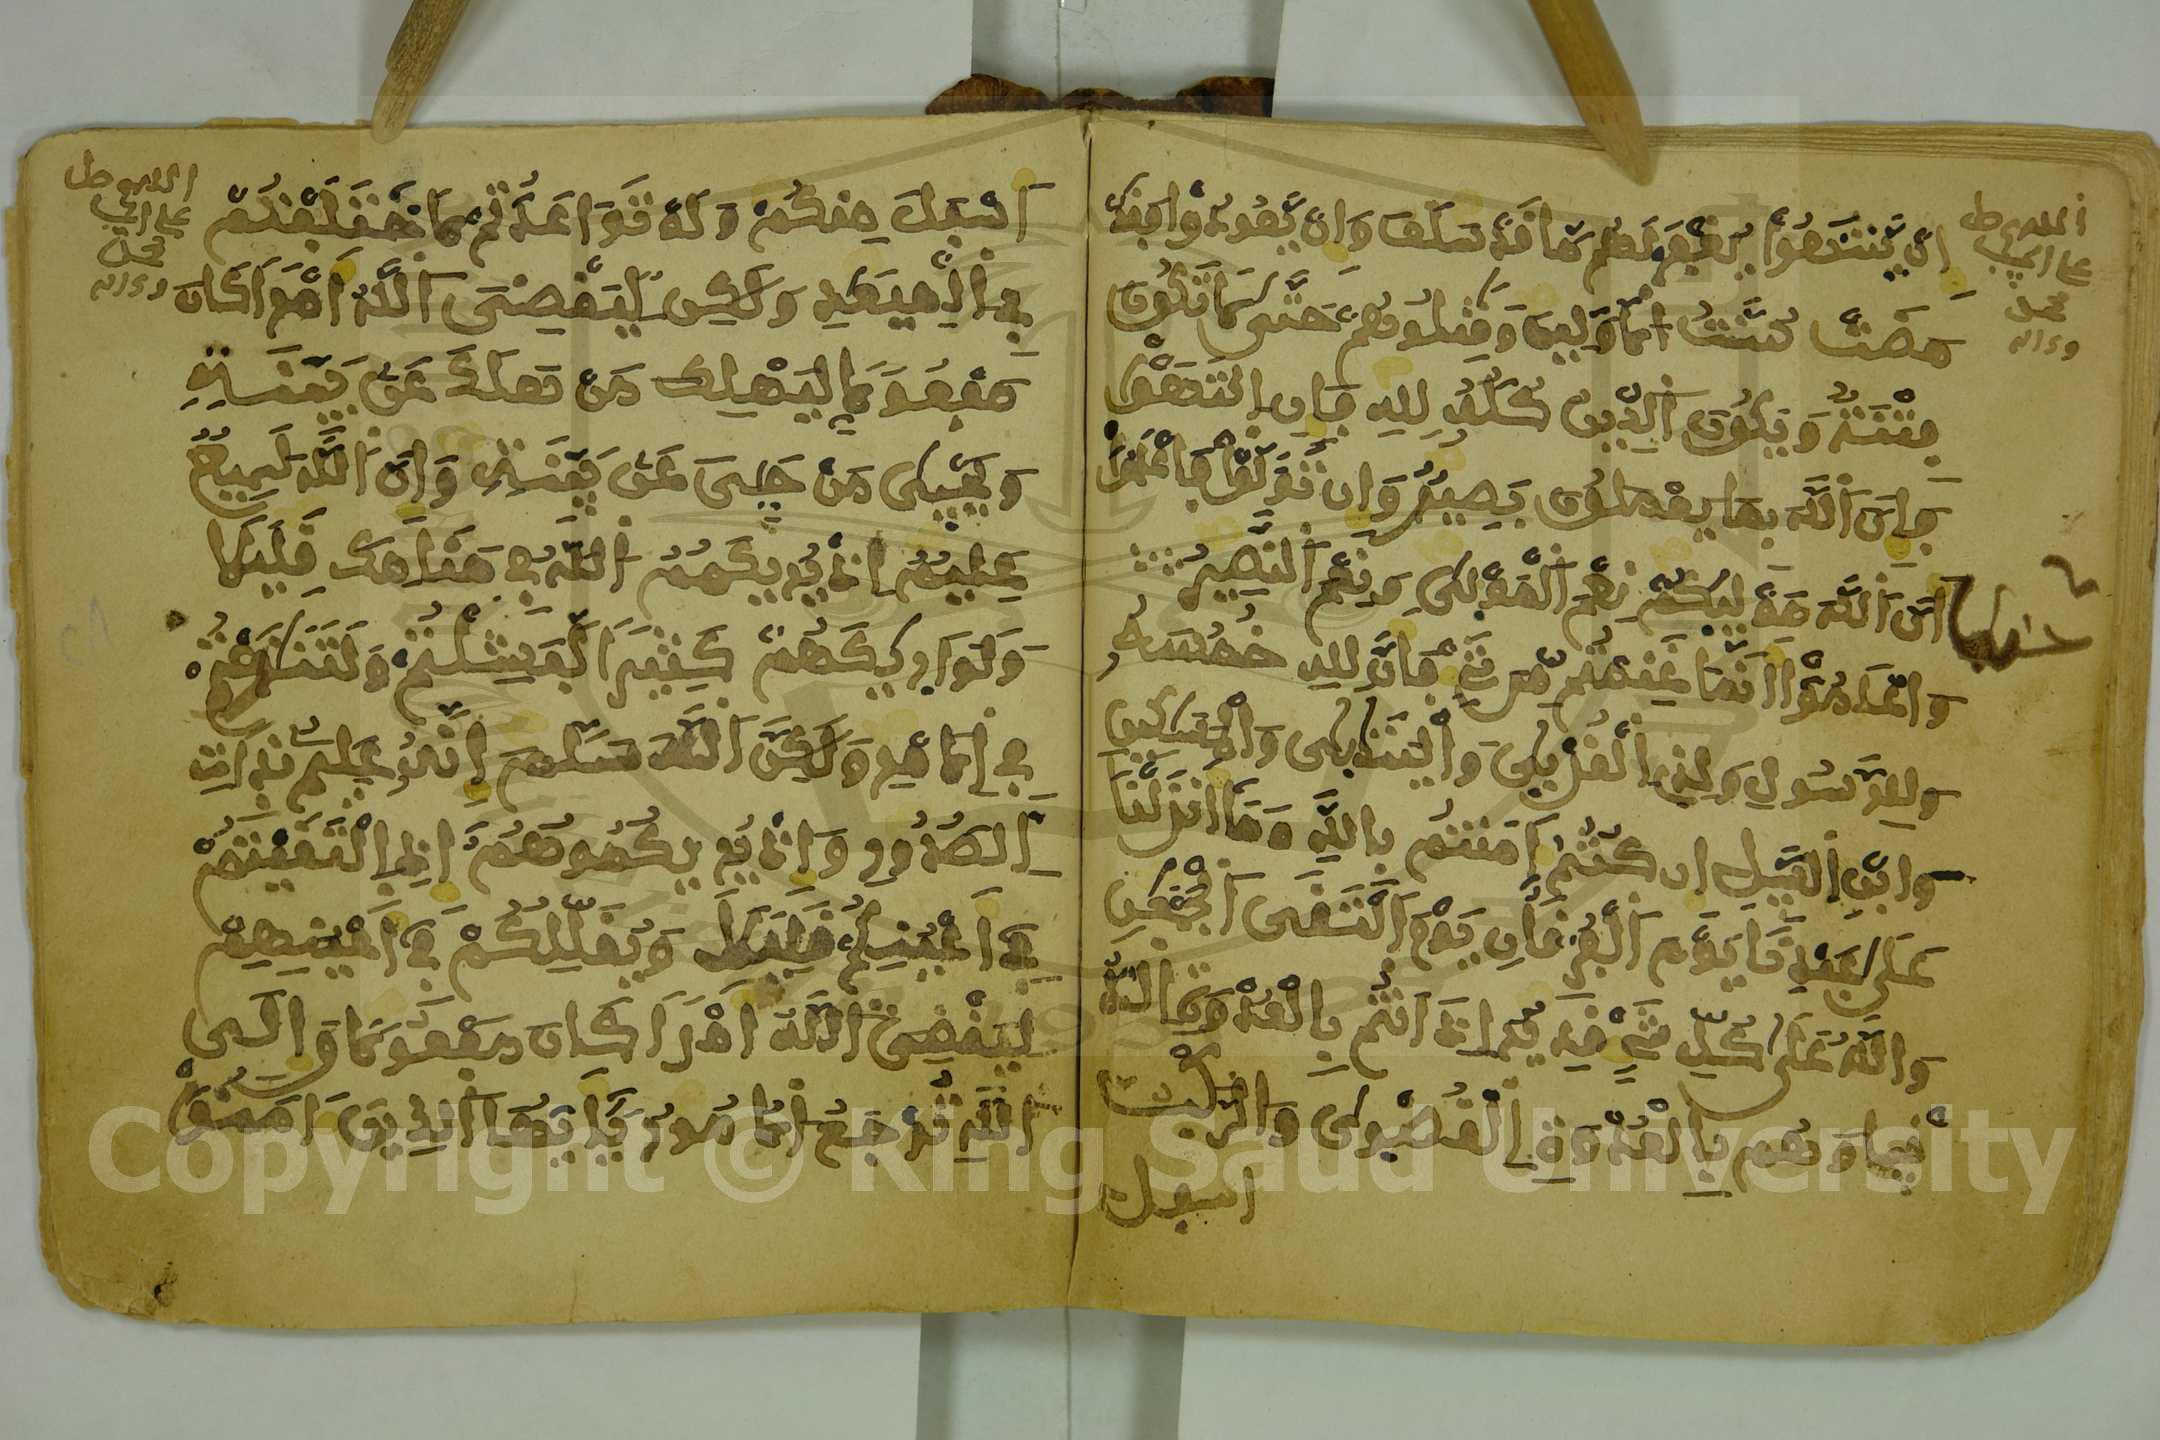 اللهم صل
على النبي
محمد
وءاله
إِنْ يَّنتَهُوا يُغْفَرْ لَهُم مَّا قَدْ سَلَفَ وَإِنْ يَّعُودُوا فَقَدْ
مَضَتْ سُنَّتُ الاَوَّلِينَ وَقَٰتِلُوهُمْ حَتَّىٰ لَا تَكُونَ
فِتْنَةٌ وَيَكُونَ الدِّينُ كُلُّهُ لِلهِ فَإِنِ انتَهَوْا
فَإِنَّ اللَّهَ بِمَا يَعْمَلُونَ بَصِيرٌ وَإِن تَوَلَّوْا فَاعْلَمُوا
أَنَّ اللَّهَ مَوْلَيٰكُمْ نِعْمَ الْمَوْلَىٰ وَنِعْمَ النَّصِيرُ
وَاعْلَمُوا أَنَّمَا غَنِمْتُم مِّن شَيْءٍ فَأَنَّ لِلهِ خُمُسَهُ
وَلِلرَّسُولِ وَلِذِي الْقُرْبَىٰ وَالْيَتَٰمَىٰ وَالْمَسَٰكِينِ
وَابْنِ السَّبِيلِ إِن كُنتُمُ ءَامَنتُم بِاللَّهِ وَمَا أَنزَلْنَا
عَلَىٰ عَبْدِنَا يَوْمَ الْفُرْقَانِ يَوْمَ الْتَقَى الْجَمْعَٰنِ
وَاللَّهُ عَلَىٰ كُلِّ شَيْءٍ قَدِيرٌ إِذَ انتُم بِالْعُدْوَةِ الدُّ
نْيَا وَهُم بِالْعُدْوَةِ الْقُصْوَىٰ وَالرَّكْبُ
اسفل
اللهم صل
على النبي
محمد
وءاله
أَسْفَلَ مِنكُمْ وَلَوْ تَوَاعَدتُّمْ لَاخْتَلَفْتُمْ
فِي الْمِيعَٰدِ وَلَٰكِن لِّيَقْضِيَ اللَّهُ أَمْرًا كَانَ
مَفْعُولًا لِّيَهْلِكَ مَنْ هَلَكَ عَنْ بَيِّنَةٍ
وَيَحْيَىٰ مَنْ حَيِيَ عَنْ بَيِّنَةٍ وَإِنَّ اللَّهَ لَسَمِيعٌ
عَلِيمٌ إِذْ يُرِيكَهُمُ اللَّهُ فِي مَنَامِكَ قَلِيلًا
وَلَوَ ارَيٰكَهُمْ كَثِيرًا لَّفَشِلْتُمْ وَلَتَنَٰزَعْتُمْ
فِي الاَمْرِ وَلَٰكِنَّ اللَّهَ سَلَّمَ إِنَّهُ عَلِيمٌ بِذَاتِ
الصُّدُورِ وَإِذْ يُرِيكُمُوهُمُ إِذِ الْتَقَيْتُمْ
فِي أَعْيُنِكُمْ قَلِيلًا وَيُقَلِّلُكُمْ فِي أَعْيُنِهِمْ
لِيَقْضِيَ اللَّهُ أَمْرًا كَانَ مَفْعُولًا وَإِلَى
اللَّهِ تُرْجَعُ الاُمُورُ يَٰأَيُّهَا الَّذِينَ ءَامَنُوا